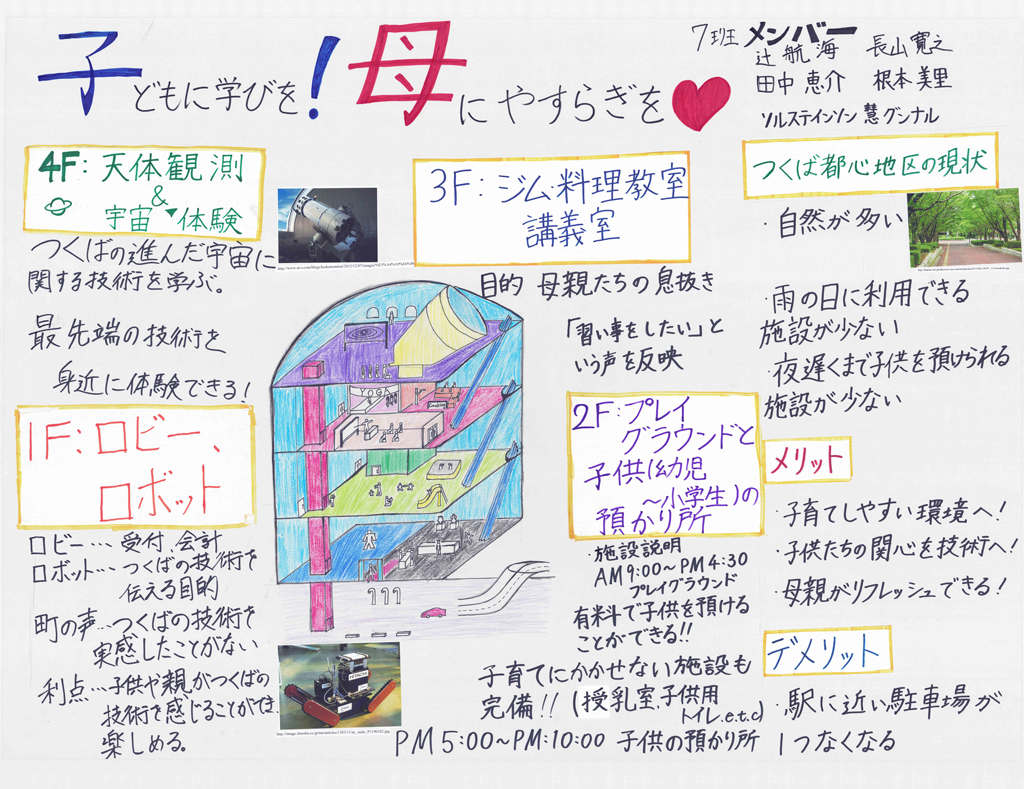 子どもに学びを!母にやすらぎを
7班 メンバー
辻 航海 長山 寛之
田中 恵介 根本 美里
ソルステインソン 慧グンナル
4F:天体観測
&
宇宙▼体験
つくばの進んだ宇宙に
関する技術を学ぶ。
最先端の技術を
身近に体験できる!
1F:ロビー、
ロボット
ロビー…受付、会計
ロボット…つくばの技術を
伝える目的
町の声…つくばの技術を
実感したことがない
利点…子供や親がつくばの
技術を感じることができ、
楽しめる。
3F:ジム料理教室
講義室
目的 母親たちの息抜き
「習い事をしたい」と
いう声を反映
YOGA
HITACHI
2F:プレイ
グラウンドと
子供(幼児
〜小学生)の
預かり所
・施設説明
AM9:00〜PM4:30
プレイグラウンド
有料で子供を預ける
ことができる!!
子育てにかかせない施設も
完備!!(授乳室、子供用
トイレ.e.t.c)
PM5:00〜PM:10:00 子供の預かり所
つくば都心地区の現状
・自然が多い
・雨の日に利用できる
施設が少ない
・夜遅くまで子供を預けられる
施設が少ない
メリット
・子育てしやすい環境へ!
・子供たちの関心を技術へ!
・母親がリフレッシュできる!
デメリット
・駅に近い駐車場が
1つなくなる